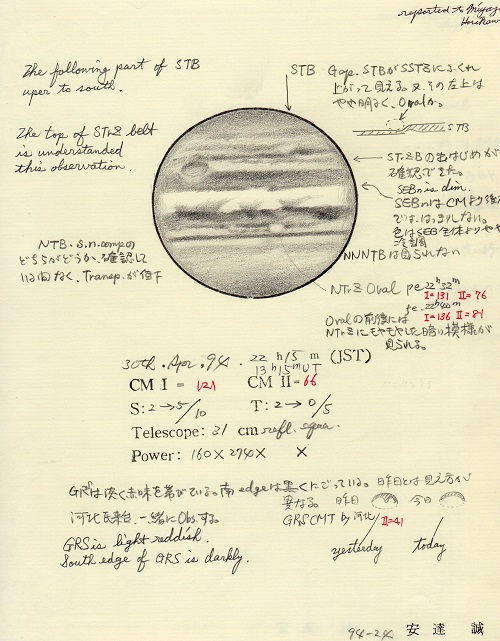 reported to Miyaza
Horikaw
The following part of STB
uper to south.
STB Gap. STBがSSTZにふくれ
上がって見える。又、その左上は
やや明るく、Ovalか。
STB
The top of STrZ belt
is understanded
this observation.
STrZBの出はじめが
確認できた。
SEBn is dim.
SEBnはCMより後
では、はっきりしない。
色はSEB全体よりやや
NNNTBは見られない
NTB. s.n. compの
どちらがどうか、確認して
いる間なく、Transp.が低下
NTrZ Oval pc 22h 32m
I=131 II=76
fe. 22h40m
I=136 II=81
Ovalの前後には
NTrZにもやもやした暗い模様が
見られる。
30th. Apr. 94. 22 h 15 m (JST)
13h 15m UT
CM I = 121 CM II = 66
S: 2→5/10 T: 2→0/5
Telescope: 31 cm refl. equa.
Power: 160×274× ×
GRSは淡く赤味を帯びている。南edgeは黒くにごっている。昨日とは見え方が
異なる。 昨日 今日
河北氏来台、一緒にObs.する。
GRS CMT by 河北 II=41
GRS is light reddish.
South edge of GRS is darkly.
yesterday today
94-24 安達 誠